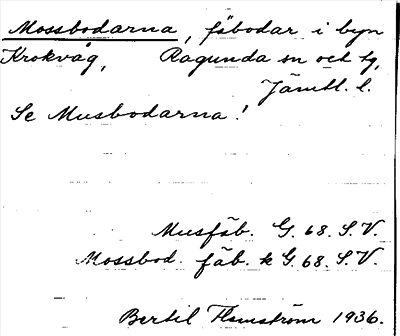 Mossbodarna, fäbodar i byn
Krokvåg, Ragunda sn och tg,
Jämtl. l.
Se Musbodarna!
Musfäb. G. 68. S.V.
Mossbod. fäb. k G. 68. S.V.
Bertil Flemström 1936.